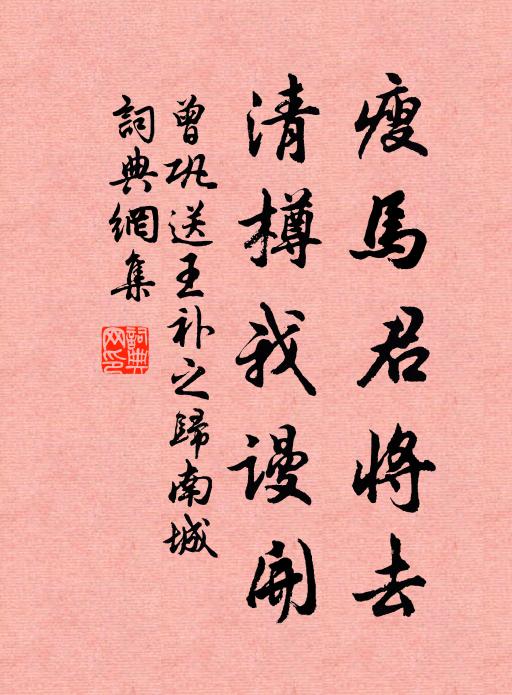 瘦馬君將去
清樽我謾開
曾巩送王补之歸南城
詞典網集
詞典網印